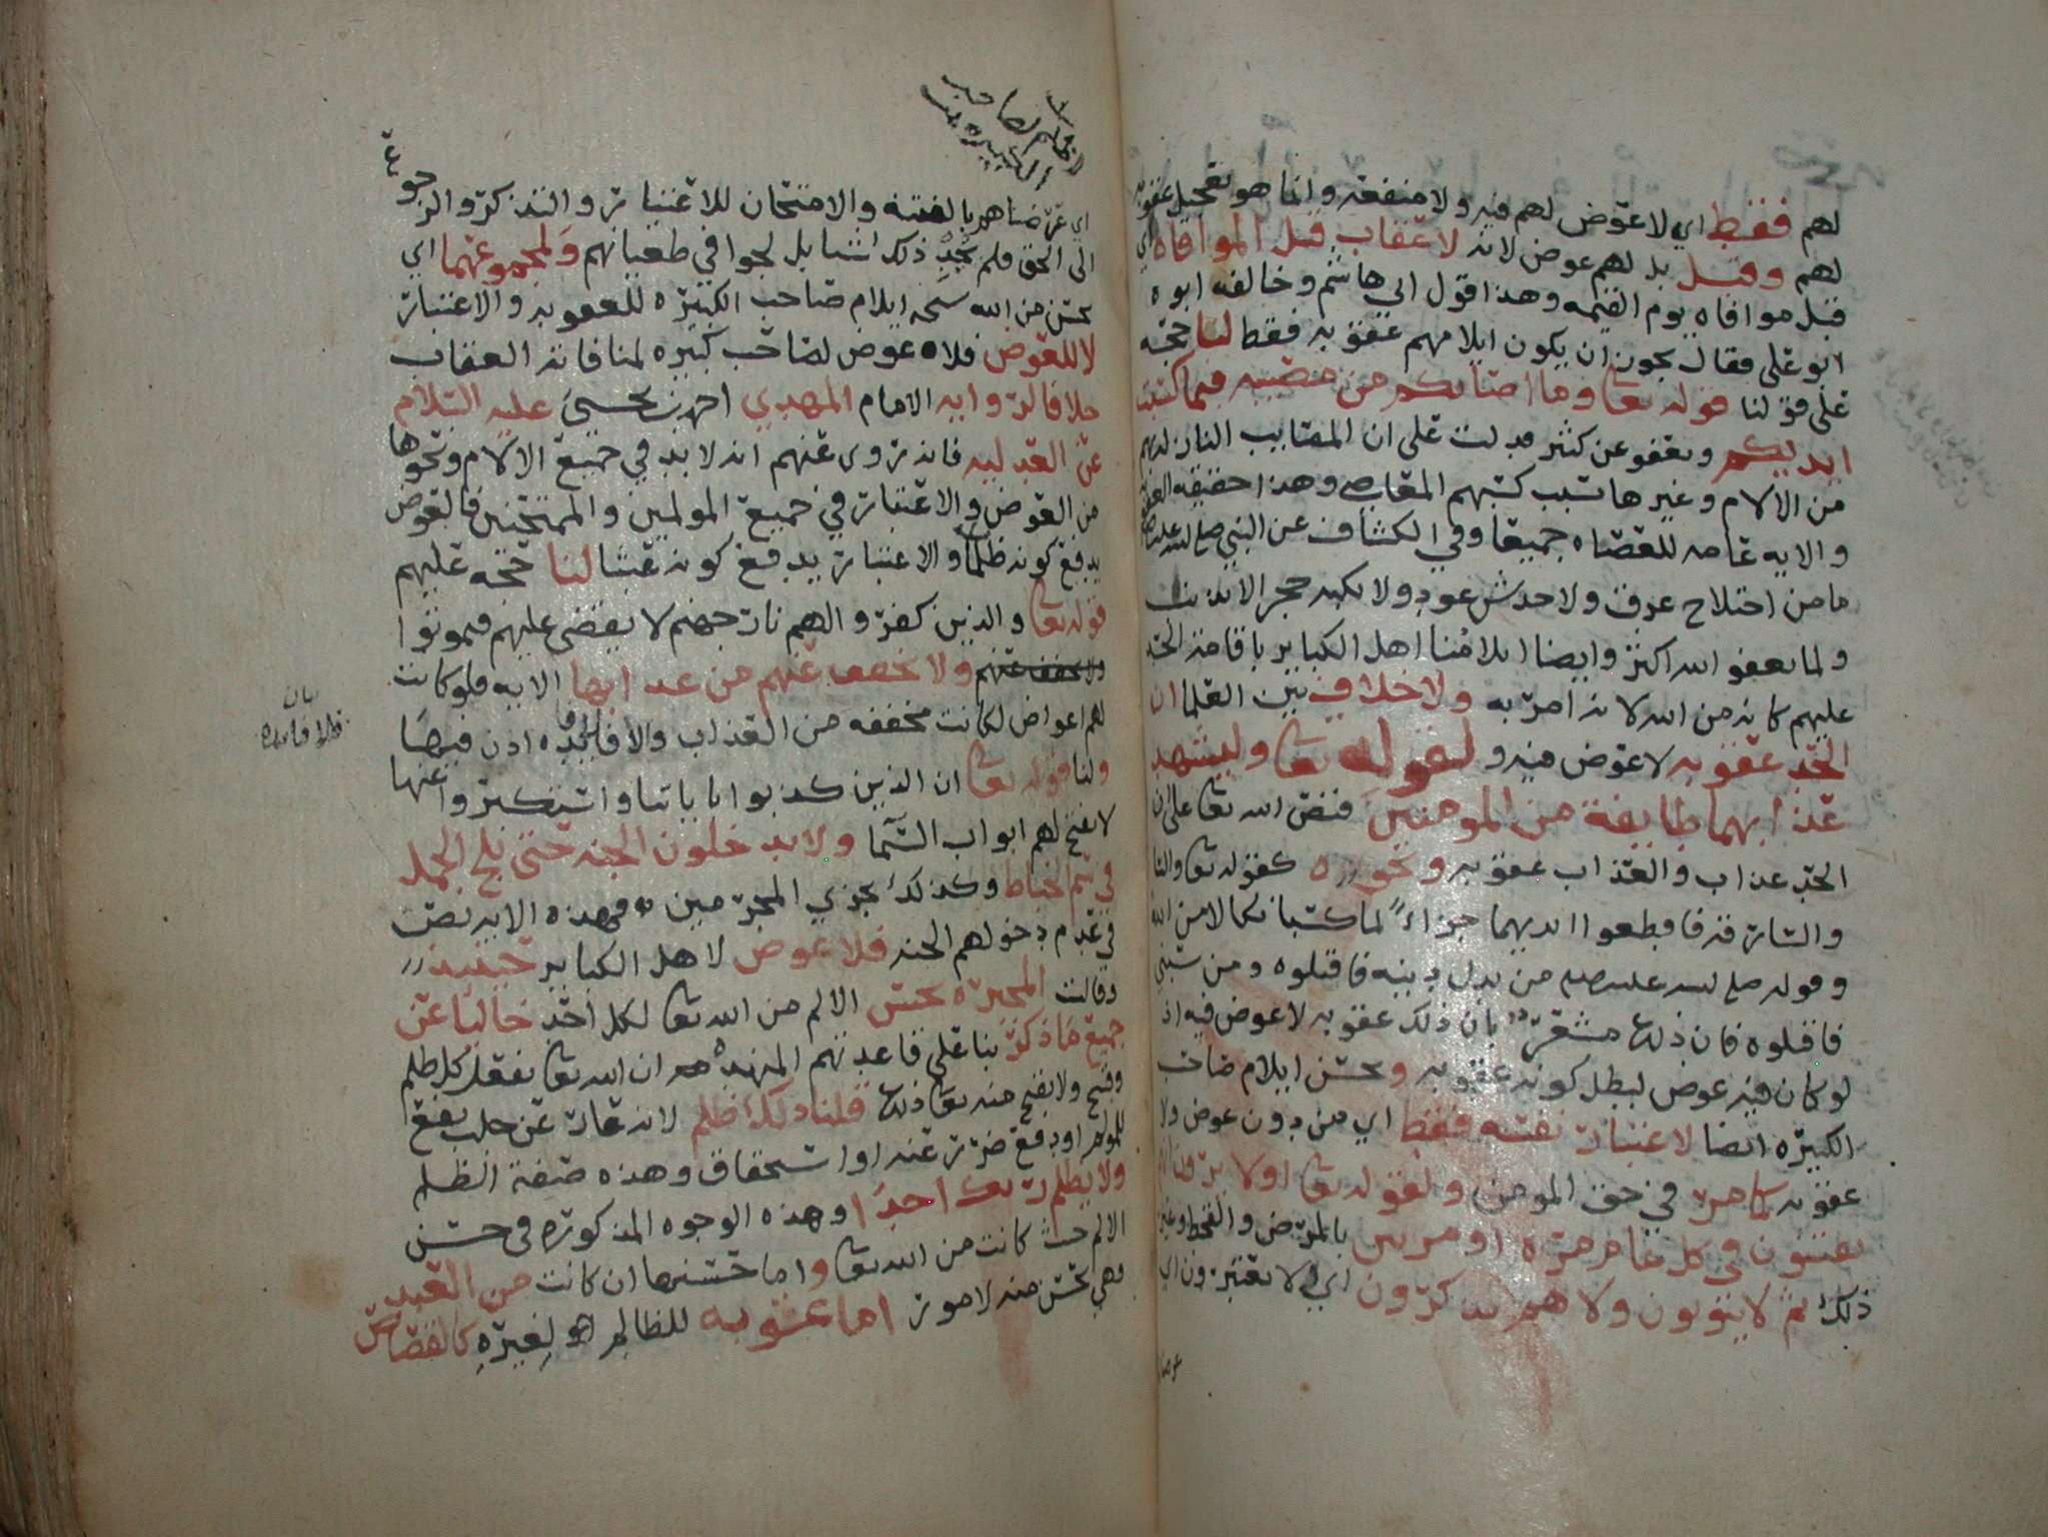 لهم فقط اي لا عوض لهم فيه ولا منفعة وانما هو تعجيل عقوبة
لهم وقيل بل لهم عوض لانه لا عقاب قبل الموافاه اي
قبل موافاه يوم القيمه وهذا قول ابي هاشم وخالفه ابوه
ابو علي فقال يجوز ان يكون ايلامهم عقوبه فقط لنا حجه
على قولنا قوله تعا وما اصابكم من مصيبه فبما كسبت
ايديكم ويعفو عن كثير فدلت على ان المصايب النازله بهم
من الالام وغيرها بسبب كسبهم المعاصي وهذا حقيقه العقوبه
والايه عامه للعصاه جميعا وفي الكشاف عن النبي صلى الله عليه
ما من اختلاج عرق ولا خدش عود ولا نكبه حجر الا بذنب
ولما يعفو الله اكثر وايضا ايلامنا اهل الكباير باقامة الحد
عليهم كانه من الله لانه امر به ولا خلاف بين العلما ان
الحد عقوبه لا عوض فيه و لقوله تعا وليشهد
عذابهما طايفة من المومنين فنص الله تعا على ان
الحد عذاب والعذاب عقوبه ونحوه كقوله تعا والسا
والسارقه فاقطعوا ايديهما جزاءً لما كسبا نكالا من الله
وقوله صلى الله عليه من بدل دينه فاقتلوه ومن سبني
فاقتلوه فان ذلك مشعر بان ذلك عقوبه لا عوض فيه اذ
لو كان فيه عوض لبطل كونه عقوبه ويحسن ايلام صاحب
الكبيره ايضا لاعتبار نفسه فقط اي من دون عوض ولا
عقوبه كما مر في حق المومن ولقوله تعا اولا يرون انهم
يفتنون في كل عام مرة او مرتين بالمرض والقحط وغير
ذلك ثم لا يتوبون ولا هم يذكرون اي لا يعتبرون اي
لصاحب
الكبيره
اي عرضناهم بالفتنه والامتحان للاعتبار والتذكر والرجوع
الى الحق فلم يُجْدِ ذلك شيا بل لجوا في طغيانهم ولمجموعهما اي
يحسن من الله سبحنه ايلام صاحب الكبيره للعقوبه والاعتبار
لا للعوض فلا عوض لصاحب كبيره لمنافاته العقاب
خلافا لروايه الامام المهدي احمد بن يحيى عليه السلام
عن العدليه فانه روى عنهم انه لا بد في جميع الالام ونحوها
من العوض والاعتبار في جميع المولمين والممتحنين فالعوض
يدفع كونه ظلما والاعتبار يدفع كونه عبثا لنا حجه عليهم
قوله تعا والذين كفروا لهم نار جهنم لا يقضى عليهم فيموتوا
ولا يخفف عنهم من عذابها الايه فلو كانت
لهم اعواض لكانت مخففه من العذاب والا فلا فائده اذن فيها
بيان
فلا فايده
ولنا قوله تعا ان الذين كذبوا باياتنا واستكبروا عنها
لا تفتح لهم ابواب السَّما ولا يدخلون الجنه حتى يلج الجمل
في سم الخياط وكذلك نجزي المجرمين فهذه الايه نصت
في عدم دخولهم الجنه فلا عوض لاهل الكباير حينيذ
وقالت المجبره يحسن الالم من الله تعا لكل احد خاليا عن
جميع ما ذكر بنا على قاعدتهم المنهده ان الله تعا يفعل كل ظلم
وقبيح ولا يقبح منه تعا ذلك قلنا ذلك ظلم لانه عار عن جلب نفع
للمولم او دفع ضرر عنه او استحقاق وهذه صفة الظلم
ولا يظلم ربك احدًا وهذه الوجوه المذكوره في حسن
الالم حيث كانت من الله تعا واما حسنها ان كانت من العبد
فهي تحسن منه لامور اما عقوبه للظالم او لغيره كالقصاص